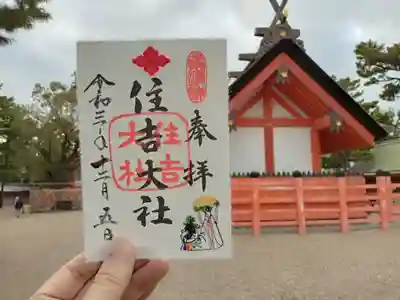 奉拝
住吉大社
住吉
大社
令和三年十二月五日